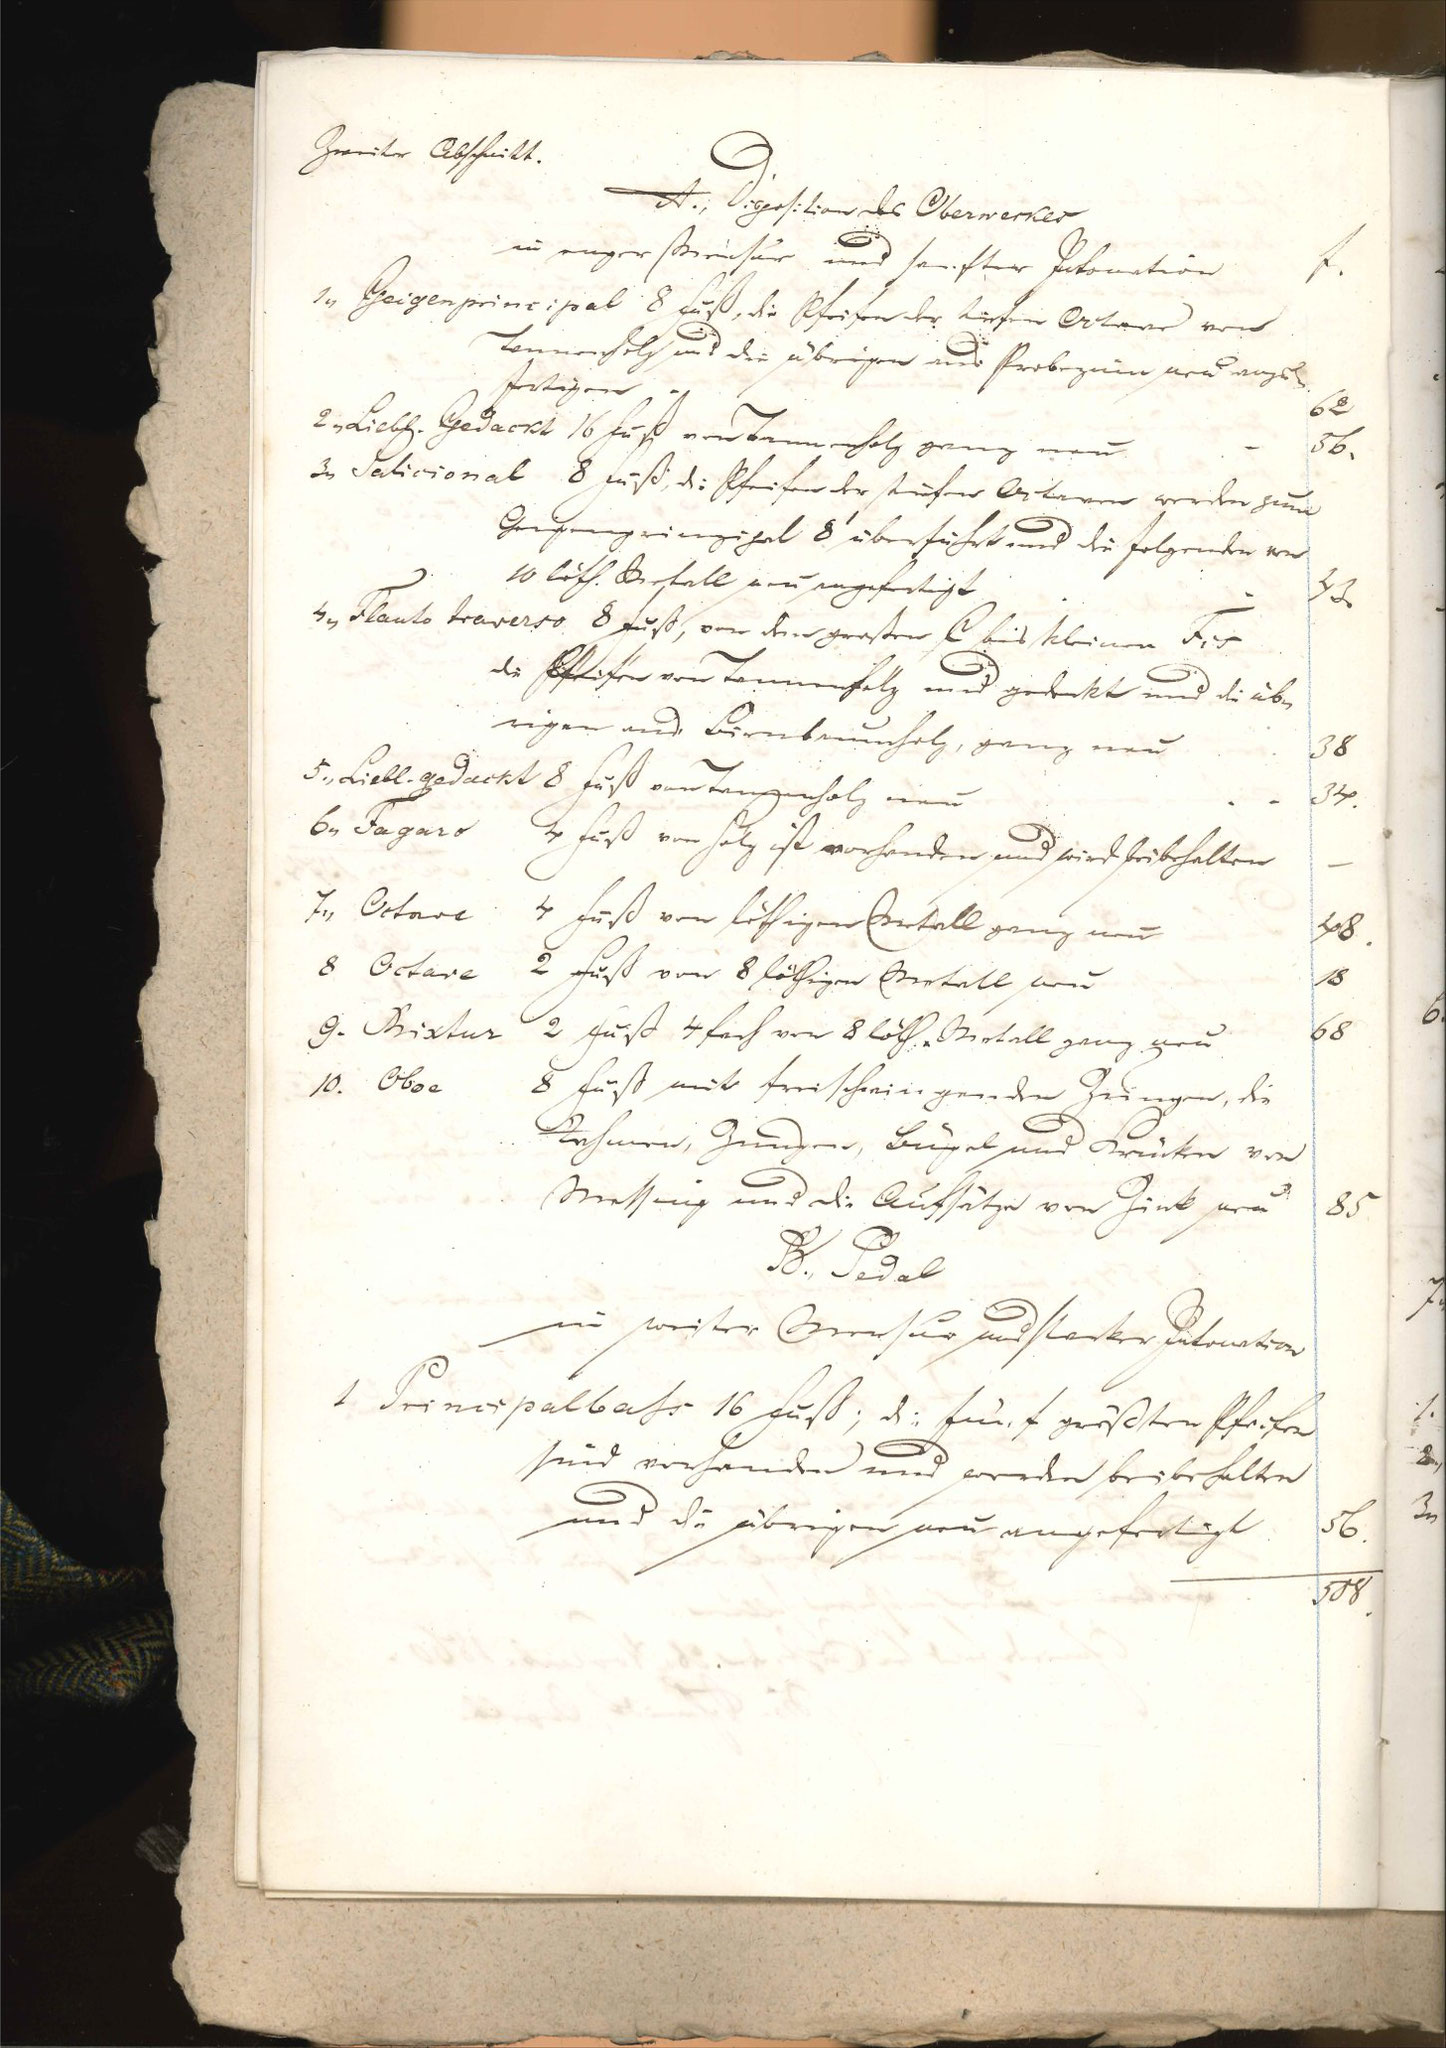 Zweiter Abschnitt.
A., Disposition des Oberwerkes
in enger Mensur und sanfter Intonation f.
1„ Geigenprincipal 8 Fuß, die Pfeifen der tiefen Octave von
Tannenholz und die übrigen aus Probezinn neu anzu=
fertigen - 62
2„ Liebl. Gedackt 16 Fuß von Tannenholz ganz neu - 56.
3„ Salicional 8 Fuß, die Pfeifen der tiefen Octaven werden zum
Geigenprinzipal 8' überführt und die folgenden von
10 löth. Metall neu angefertigt - 43.
4„ Flauto traverso 8 Fuß, von dem großen C bis kleinen Fis
die Pfeifen von Tannenholz und gedeckt und die üb=
rigen aus Birnbaumholz, ganz neu 38
5., Liebl. gedackt 8 Fuß von Tannenholz neu - - 34.
6„ Fugaro 4 Fuß von Holz ist vorhanden und wird beibehalten —
7„ Octave 4 Fuß von löthigen Metall ganz neu 48.
8 Octave 2 Fuß von 8 löthigen Metall neu 18
9. Mixtur 2 Fuß 4 fach von 8 löth. Metall ganz neu 68
10. Oboe 8 Fuß mit freischwingenden Zungen, die
Rahmen, Zungen, Bügel und Krücken von
Messing und die Aufsätze von Zink neu 85
B., Pedal
in weiter Mensur und starker Intonation
1 Principalbass 16 Fuß; die fünf größten Pfeifen
sind vorhanden und werden beibehalten
und die übrigen neu angefertigt 56.
508.